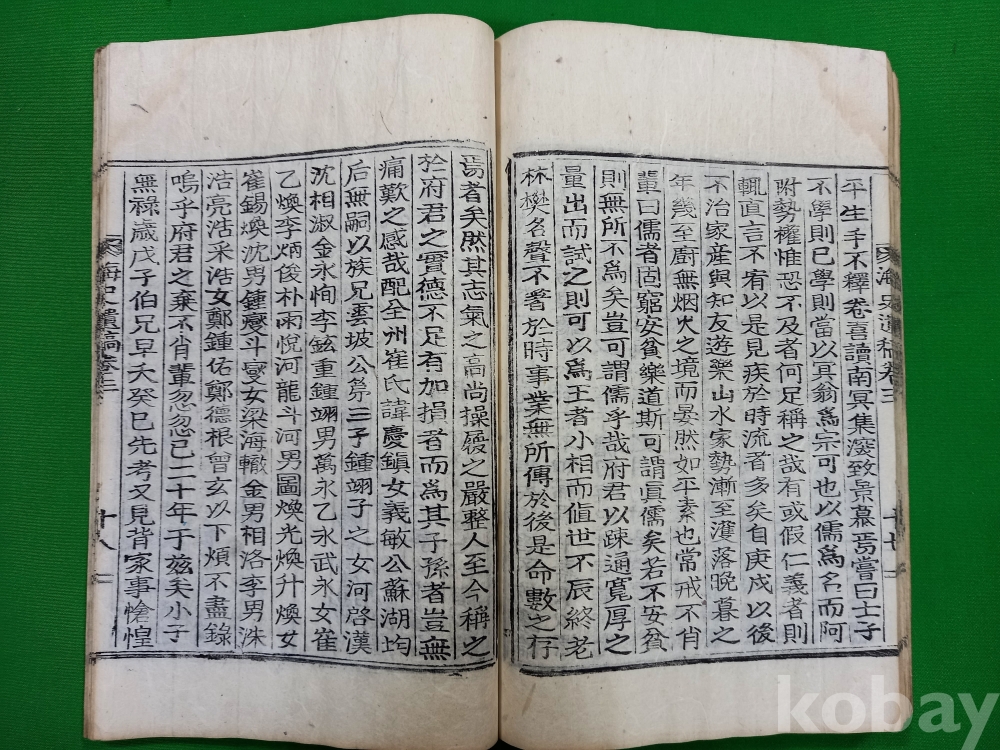 平生手不釋卷喜讀南冥集深致景慕焉嘗曰士子
不學則已學則當以其翁爲宗可也以儒爲名而阿
附勢權惟恐不及者何足稱之哉有或假仁義者則
輒直言不宥以是見疾於時流者多矣自庚戌以後
不治家産與知友遊樂山水家勢漸至濩落晩暮之
年幾至廚無烟火之境而晏然如平素也常戒不肖
輩曰儒者固窮安貧樂道斯可謂眞儒矣若不安貧
則無所不爲矣豈可謂儒乎哉府君以疎通寬厚之
量出而試之則可以爲王者小相而値世不辰終老
林樊名聲不著於時事業無所傳於後是命數之存
海史遺稿卷三
十七
焉者矣然其志氣之高尚操履之嚴整人至今稱之
於府君之實德不足有加損者而爲其子孫者豈無
痛歎之感哉配全州崔氏諱慶鎭女義敏公蘇湖均
后無嗣以族兄雲坡公第三子鍾翊子之女河啓漢
沈相淑金永恂李鉉重鍾翊男萬永乙永武永女崔
乙煥李炳俊朴雨悅河龍斗河男圖煥光煥升煥女
崔錫煥沈男鍾慶斗燮女梁海轍金男相洛李男洙
浩亮浩采浩女鄭鍾佑鄭德根曾玄以下煩不盡錄
嗚乎府君之棄不肖輩忽忽已二十年于玆矣小子
無祿歲戊子伯兄早夭癸巳先考又見背家事愴惶
海史遺稿卷三
十八
kobay